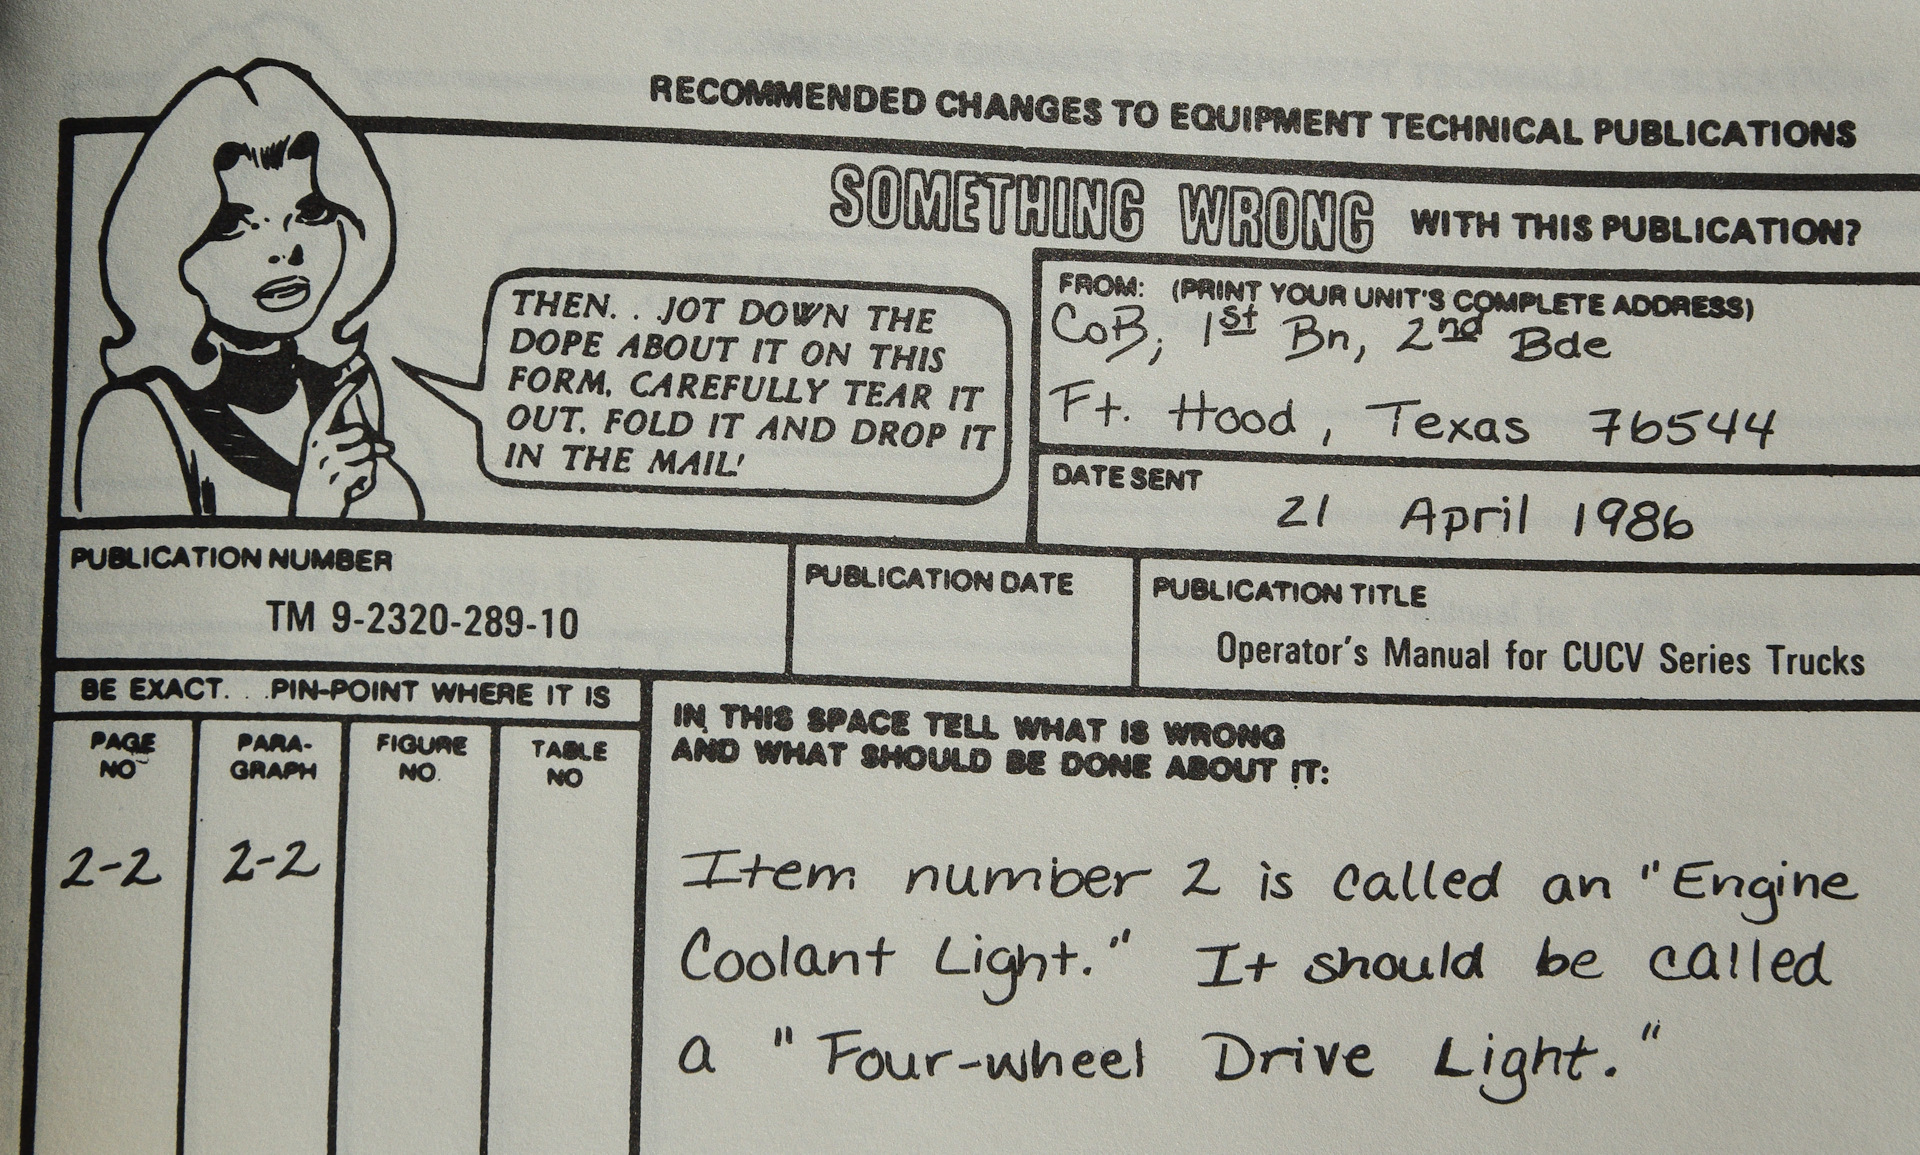 RECOMMENDED CHANGES TO EQUIPMENT TECHNICAL PUBLICATIONS
SOMETHING WRONG WITH THIS PUBLICATION?
THEN. . .JOT DOWN THE
DOPE ABOUT IT ON THIS
FORM, CAREFULLY TEAR IT
OUT, FOLD IT AND DROP IT
IN THE MAIL!
FROM: (PRINT YOUR UNIT'S COMPLETE ADDRESS)
CoB, 1st Bn, 2nd Bde
Ft. Hood, Texas 76544
DATE SENT
21 April 1986
PUBLICATION NUMBER
TM 9-2320-289-10
PUBLICATION DATE
PUBLICATION TITLE
Operator's Manual for CUCV Series Trucks
BE EXACT. . .PIN-POINT WHERE IT IS
PAGE
NO
PARA-
GRAPH
FIGURE
NO.
TABLE
NO
2-2
2-2
IN THIS SPACE TELL WHAT IS WRONG
AND WHAT SHOULD BE DONE ABOUT IT:
Item number 2 is called an "Engine
Coolant Light." It should be called
a "Four-wheel Drive Light."